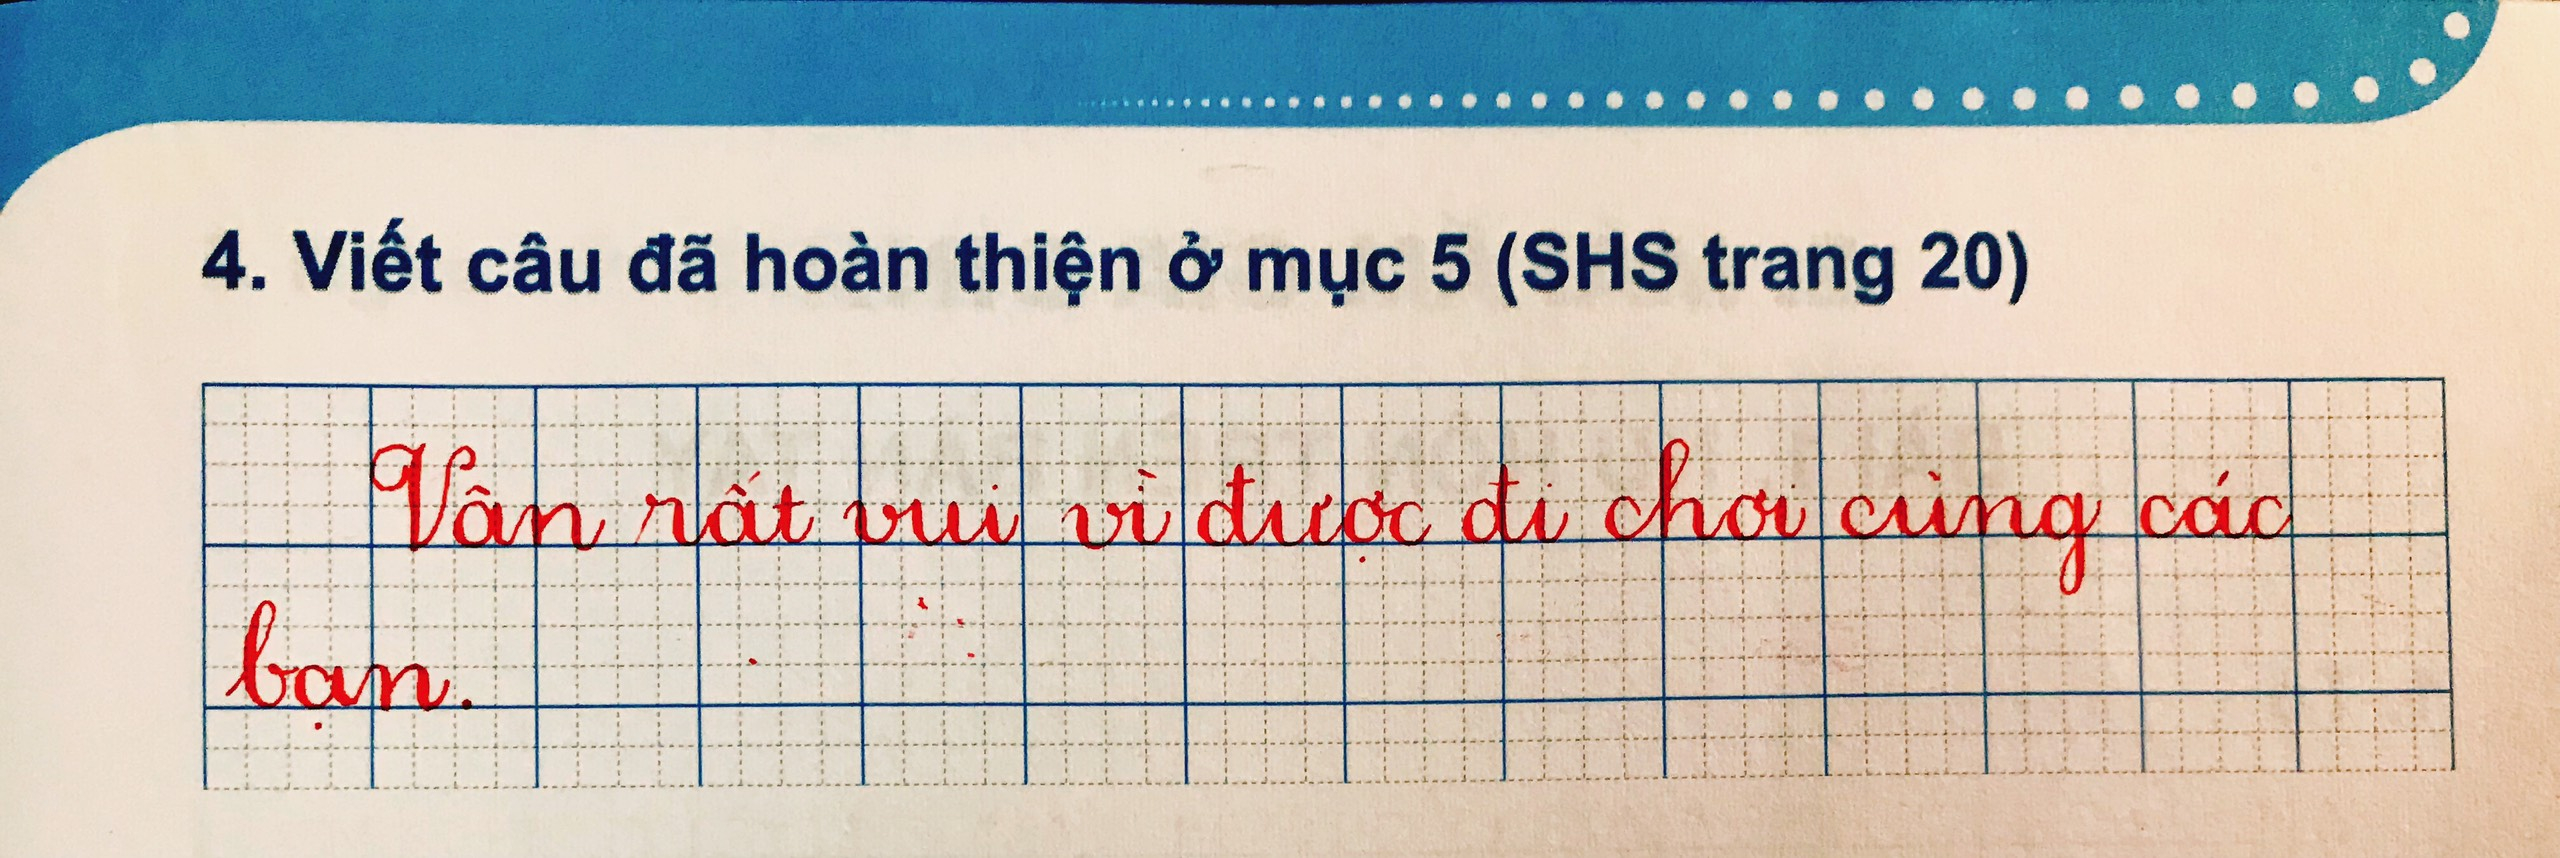 4. Viết câu đã hoàn thiện ở mục 5 (SHS trang 20)
Vân rất vui vì được đi chơi cùng các
bạn.